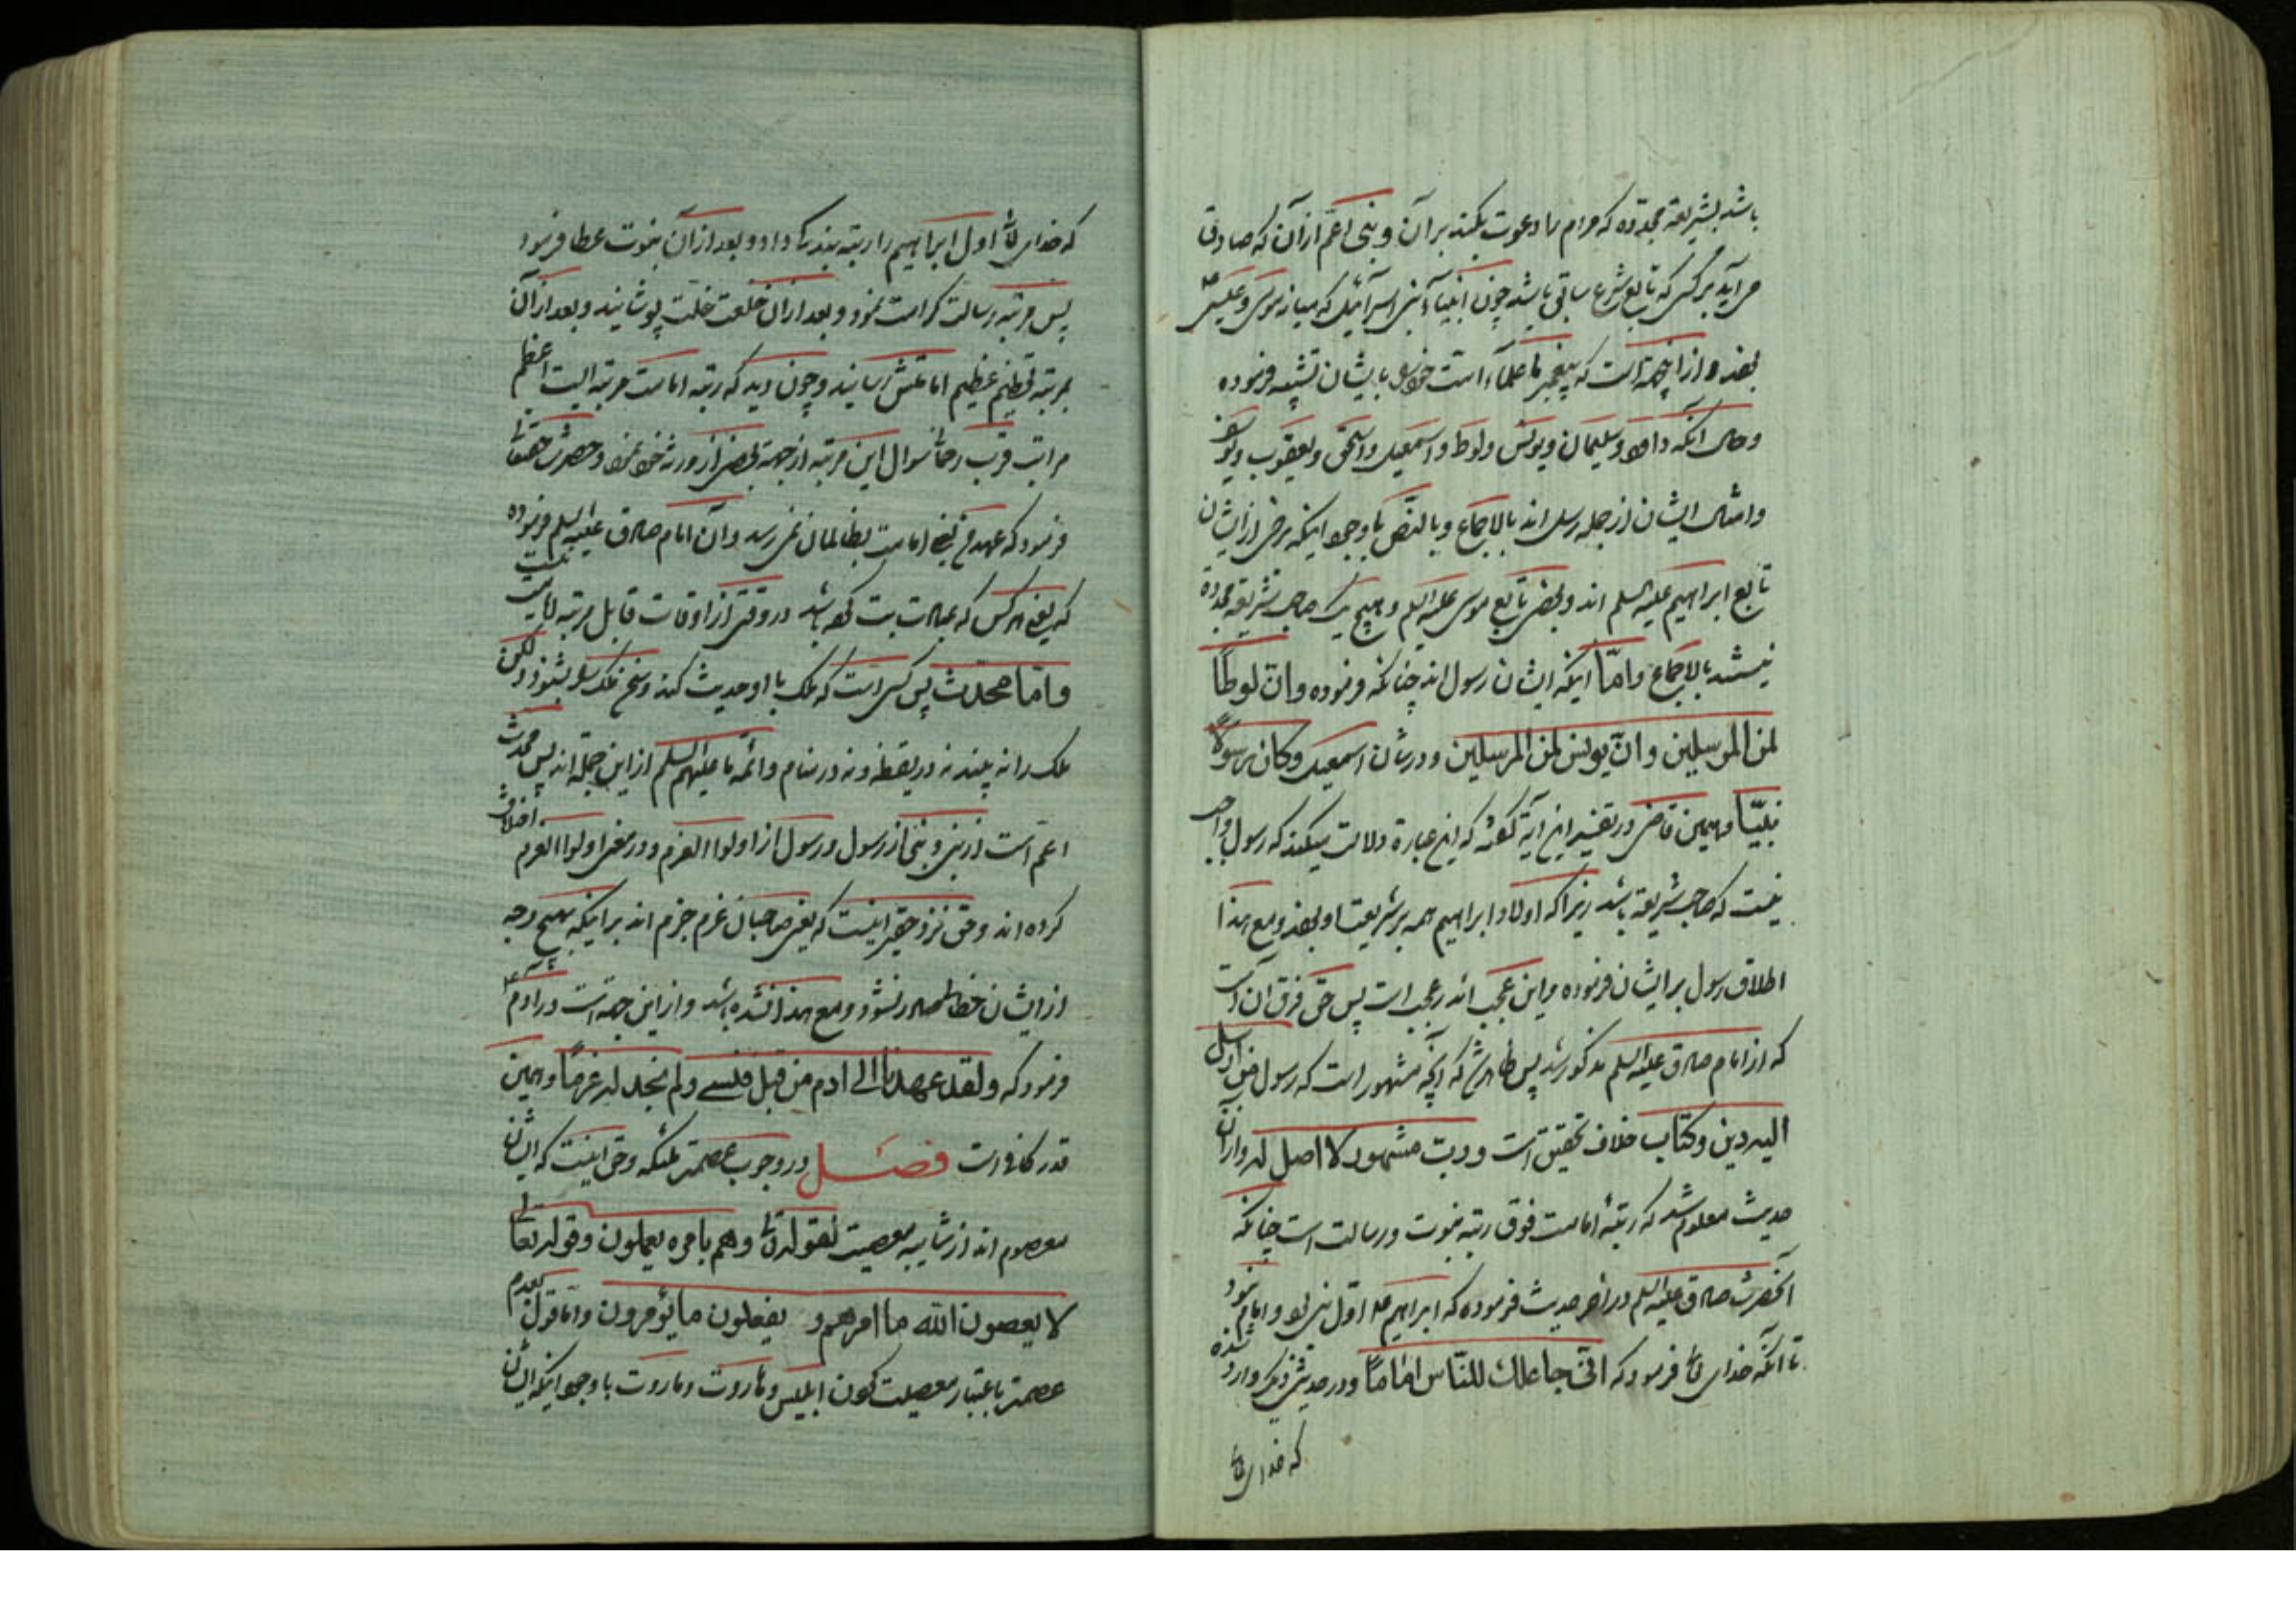 باشد بشریعة مجدّده که مردم را دعوت بکند بر آن و نبی اعمّ از آن که صادق
می آید بر کسی که تابع شرع سابق باشد چون انبیاء بنی اسرآئیل که میان موسی و عیسی ع
بودند و از این جهة است که پیغمبر ما علمآء امت خود را بایشان تشبیه فرموده
و حال آنکه داود و سلیمان و یونس و لوط و اسمعیل و اسحق و یعقوب و یوسف
و امثال ایشان از جمله رسل اند بالاجماع و بالنّص با وجود اینکه برخی از ایشان
تابع ابراهیم علیه السلم اند و بعضی تابع موسی علیه السلم و هیچ یک صاحب شریعة مجدده
نیستند بالاجماع و امّا اینکه ایشان رسول اند چنانکه فرموده و انّ لوطًا
لمن المرسلین و انّ یونس لمن المرسلین و در شان اسمعیل و کان رسولًا
نبیّا و همین قاضی در تفسیر این آیة گفته که این عبارة دلالت میکند که رسول واجب
نیست که صاحب شریعة باشد زیرا که اولاد ابراهیم همه بر شریعت او بودند و مع هذا
اطلاق رسول بر ایشان فرموده و این عجب اندر عجب است پس حق فرق آن است
که از امام صادق علیه السلم مذکور شد پس ظاهر شد که آنچه مشهور است که رسول من ارسل
الیه دین و کتاب خلاف تحقیق است و ربّ مشهور لا اصل له و از آن
حدیث معلوم شد که رتبهٔ امامت فوق رتبه نبوت و رسالت است چنانکه
آنحضرت صادق علیه السلم در آخر حدیث فرموده که ابراهیم ع اول نبی بود و امام نبود
تا آنکه خدای تع فرمود که انّی جاعلک للنّاس امامًا و در حدیثی دیگر وارد شده
که خدای تع
که خدای تع اول ابراهیم را رتبه بندگی داد و بعد از آن نبوت عطا فرمود
پس مرتبه رسالت کرامت نمود و بعد از آن خلعت خلّت پوشانید و بعد از آن
بمرتبه عظیم امامتش رسانید و چون دید که رتبه امامت مرتبه ایست اعظم
مراتب قرب سوال این مرتبه از جهة بعضی از ورثه خود نمود و حضرت حقتعالی
فرمود که عهد یعنی امامت بظالمان نمی رسد و آن امام صادق علیه السلم فرموده
که یعنی هر کس که عبادت بت کرده باشد در وقتی از اوقات قابل مرتبه امامت نیست
و امّا محدّث پس کسی است که ملک با او حدیث کند و سخن ملک را بشنود و لکن
ملک را نه بیند نه در یقظه و نه در منام و ائمّه ما علیهم السلم از این جمله اند پس محدث
اعم است از نبی و نبی از رسول و رسول از اولوا العزم و در معنی اولوا العزم اختلاف
کرده اند و حق نزد حقیر اینست که یعنی صاحبان عزم جزم اند بر اینکه بهیچ وجه
از ایشان خطا صادر نشود و مع هذا نشده باشد و از این جهة است در آدم ع
فرمود که و لقد عهدنا الی ادم من قبل فنسی و لم نجد له عزمًا و همین
قدر کافی است فصل در وجوب عصمة ملئکه و حق اینست که ایشان
معصوم اند از شایبه معصیت لقوله تع و هم بامره یعملون و قوله تعالی
لا یعصون الله ما امرهم و یفعلون ما یؤمرون و امّا قول بعدم
عصمة باعتبار معصیت کردن ابلیس و هاروت و ماروت با وجود اینکه ایشان